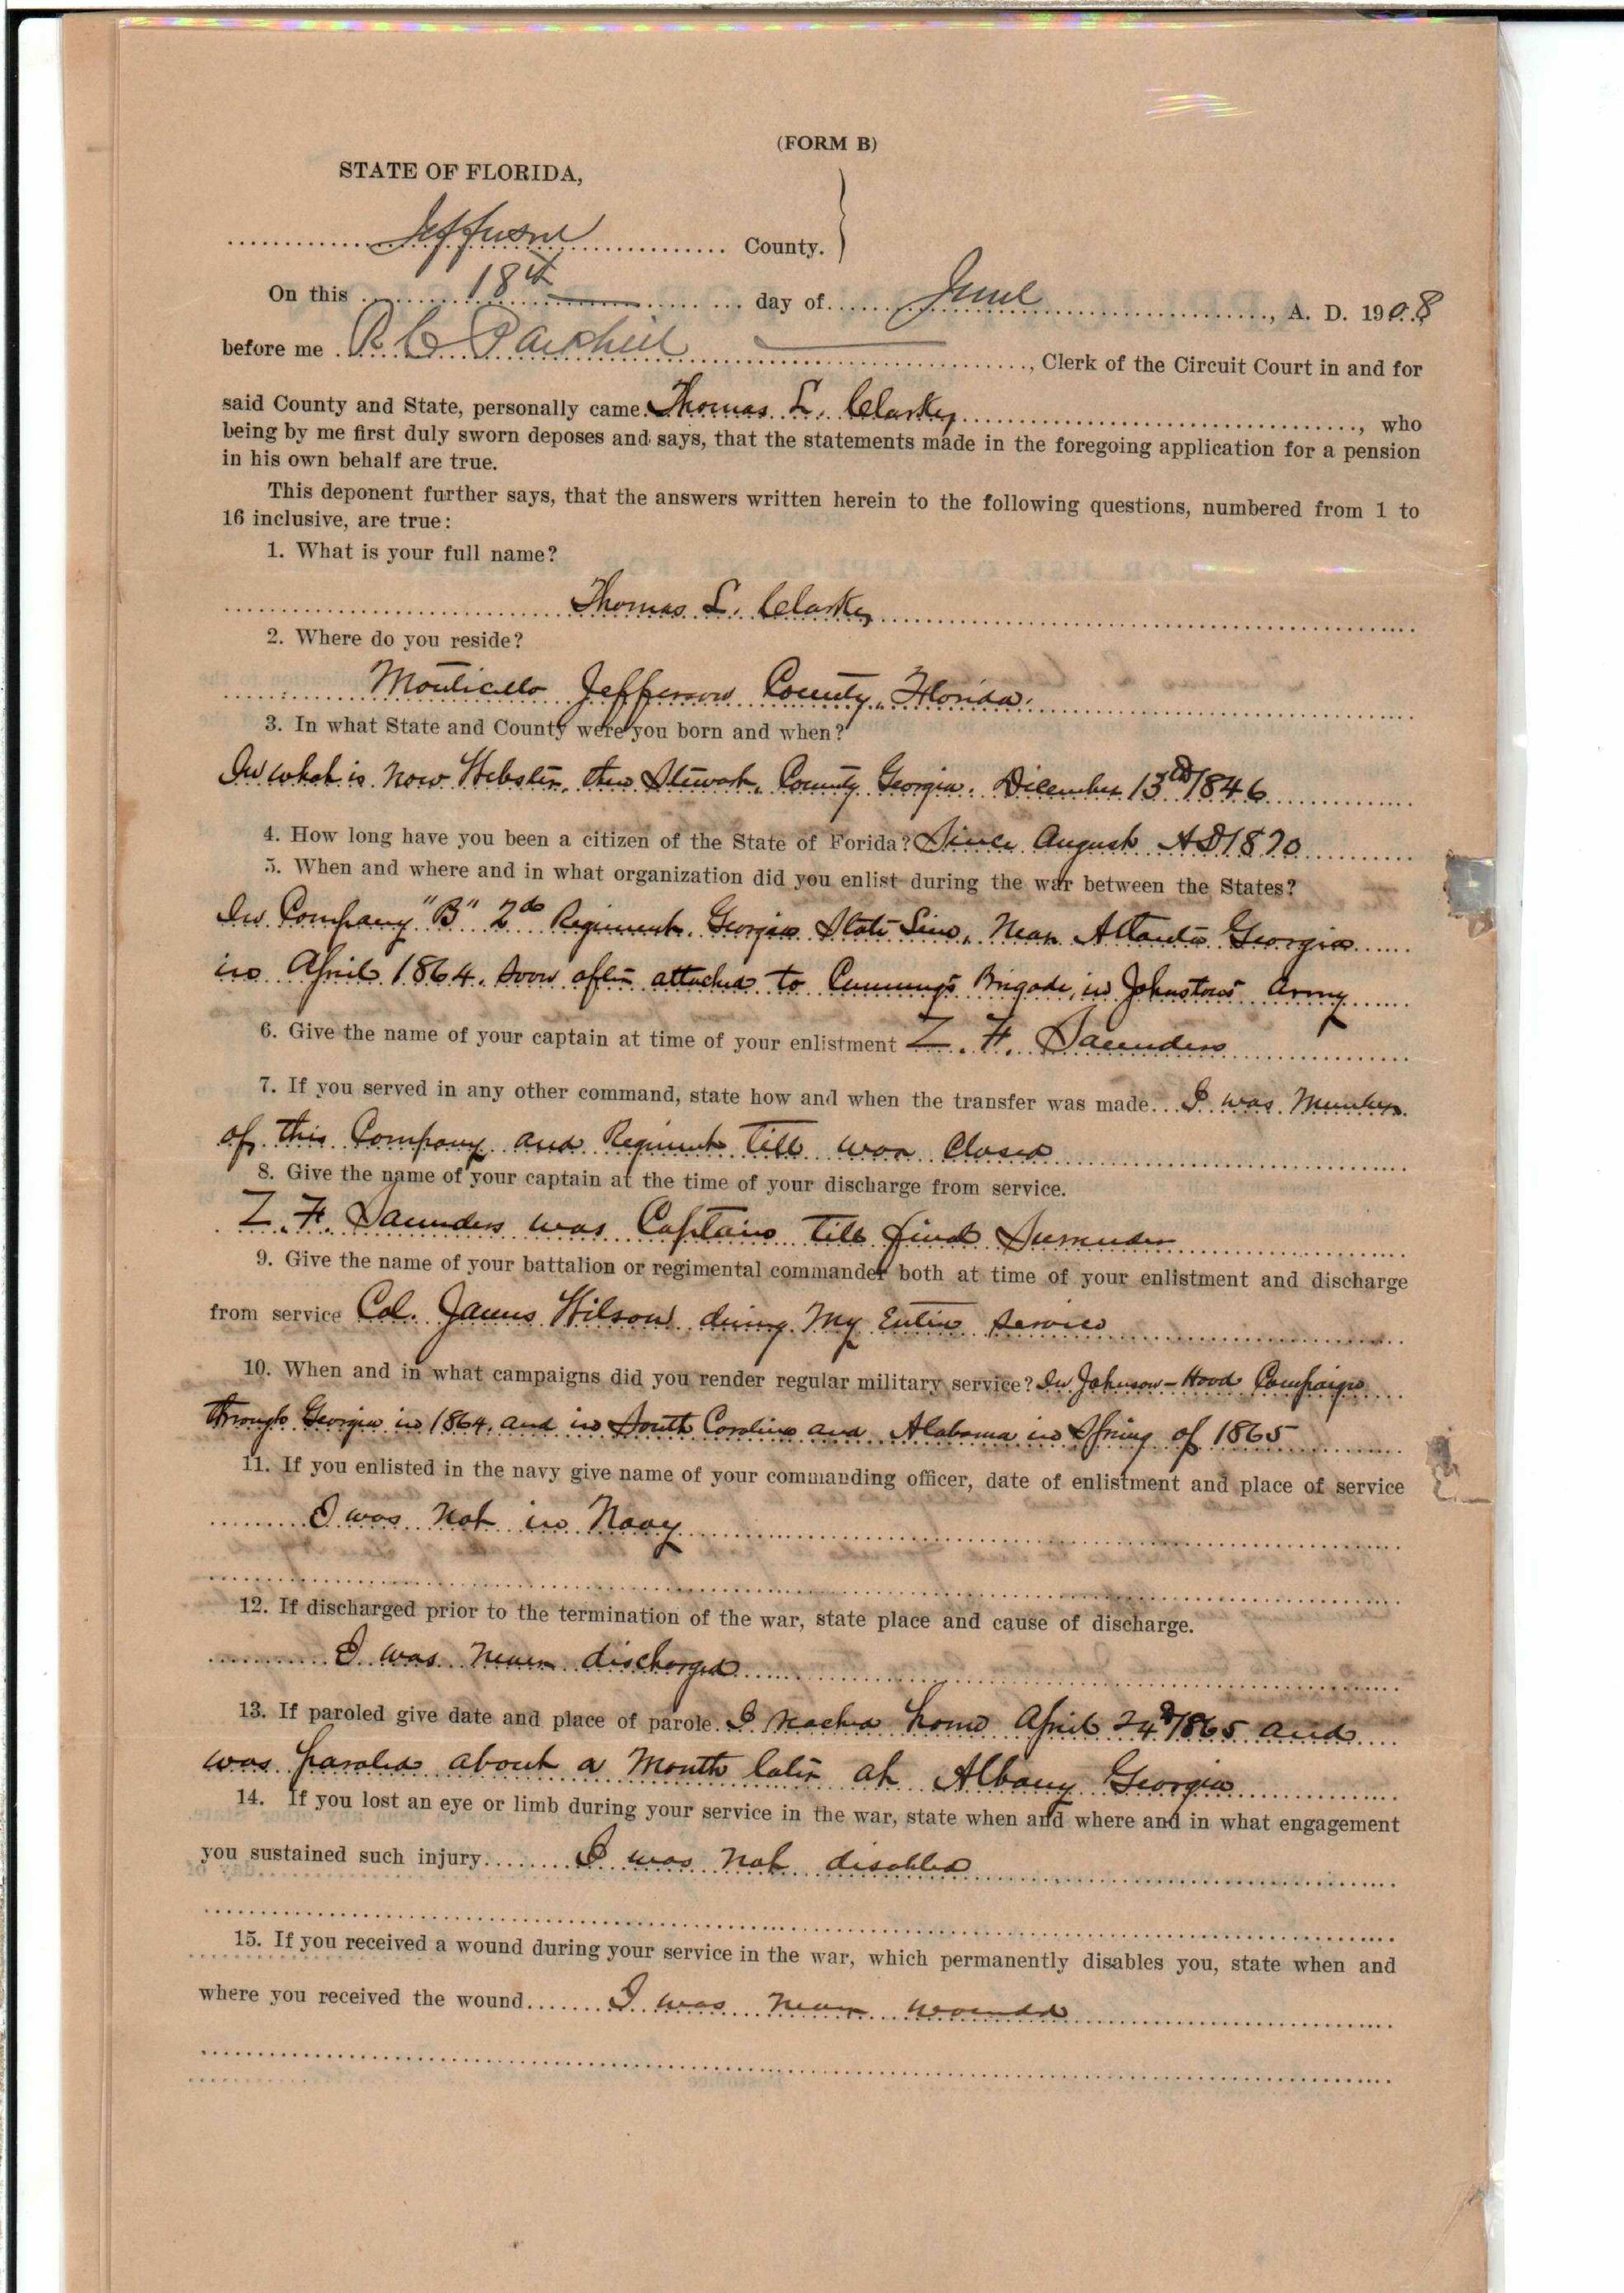 (FORM B)
STATE OF FLORIDA,
Jefferson County.
On this 18th day of June, A. D. 1908
before me R C Parkhill, Clerk of the Circuit Court in and for
said County and State, personally came Thomas L. Clarke, who
being by me first duly sworn deposes and says, that the statements made in the foregoing application for a pension
in his own behalf are true.
This deponent further says, that the answers written herein to the following questions, numbered from 1 to
16 inclusive, are true:
1. What is your full name?
Thomas L. Clarke
2. Where do you reside?
Monticello Jefferson County, Florida.
3. In what State and County were you born and when?
In what is now Webster, then Stewart, County Georgia. December 13th 1846
4. How long have you been a citizen of the State of Forida? Since August AD 1870
5. When and where and in what organization did you enlist during the war between the States?
In Company "B" 2nd Regiment. Georgia State Line, Near Atlanta Georgia
in April 1864. Soon after attached to Cumming's Brigade, in Johnston's Army
6. Give the name of your captain at time of your enlistment Z. F. Saunders
7. If you served in any other command, state how and when the transfer was made. I was Member
of this Company and Regiment till war Closed
8. Give the name of your captain at the time of your discharge from service.
Z. F. Saunders was Captain till final Surrender
9. Give the name of your battalion or regimental commander both at time of your enlistment and discharge
from service Col. James Wilson during My Entire Service
10. When and in what campaigns did you render regular military service? In Johnson-Hood Campaign
through Georgia in 1864, and in South Carolina and Alabama in Spring of 1865
11. If you enlisted in the navy give name of your commanding officer, date of enlistment and place of service
I was not in Navy
12. If discharged prior to the termination of the war, state place and cause of discharge.
I was never discharged
13. If paroled give date and place of parole. I reached home April 24th 1865 and
was paroled about a Month later at Albany Georgia
14. If you lost an eye or limb during your service in the war, state when and where and in what engagement
you sustained such injury I was not disabled
15. If you received a wound during your service in the war, which permanently disables you, state when and
where you received the wound I was never wounded